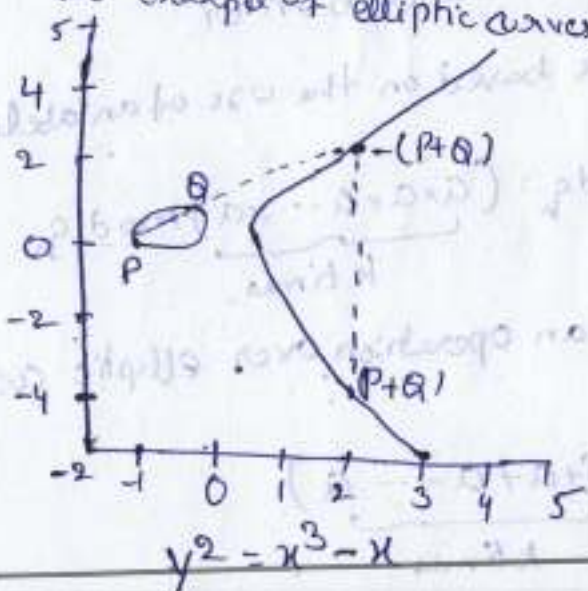 example of elliptic curves
5
4
2
0
-2
-4
Q
P
-(P+Q)
(P+Q)
-2 -1 0 1 2 3 4 5
y² = x³ - x